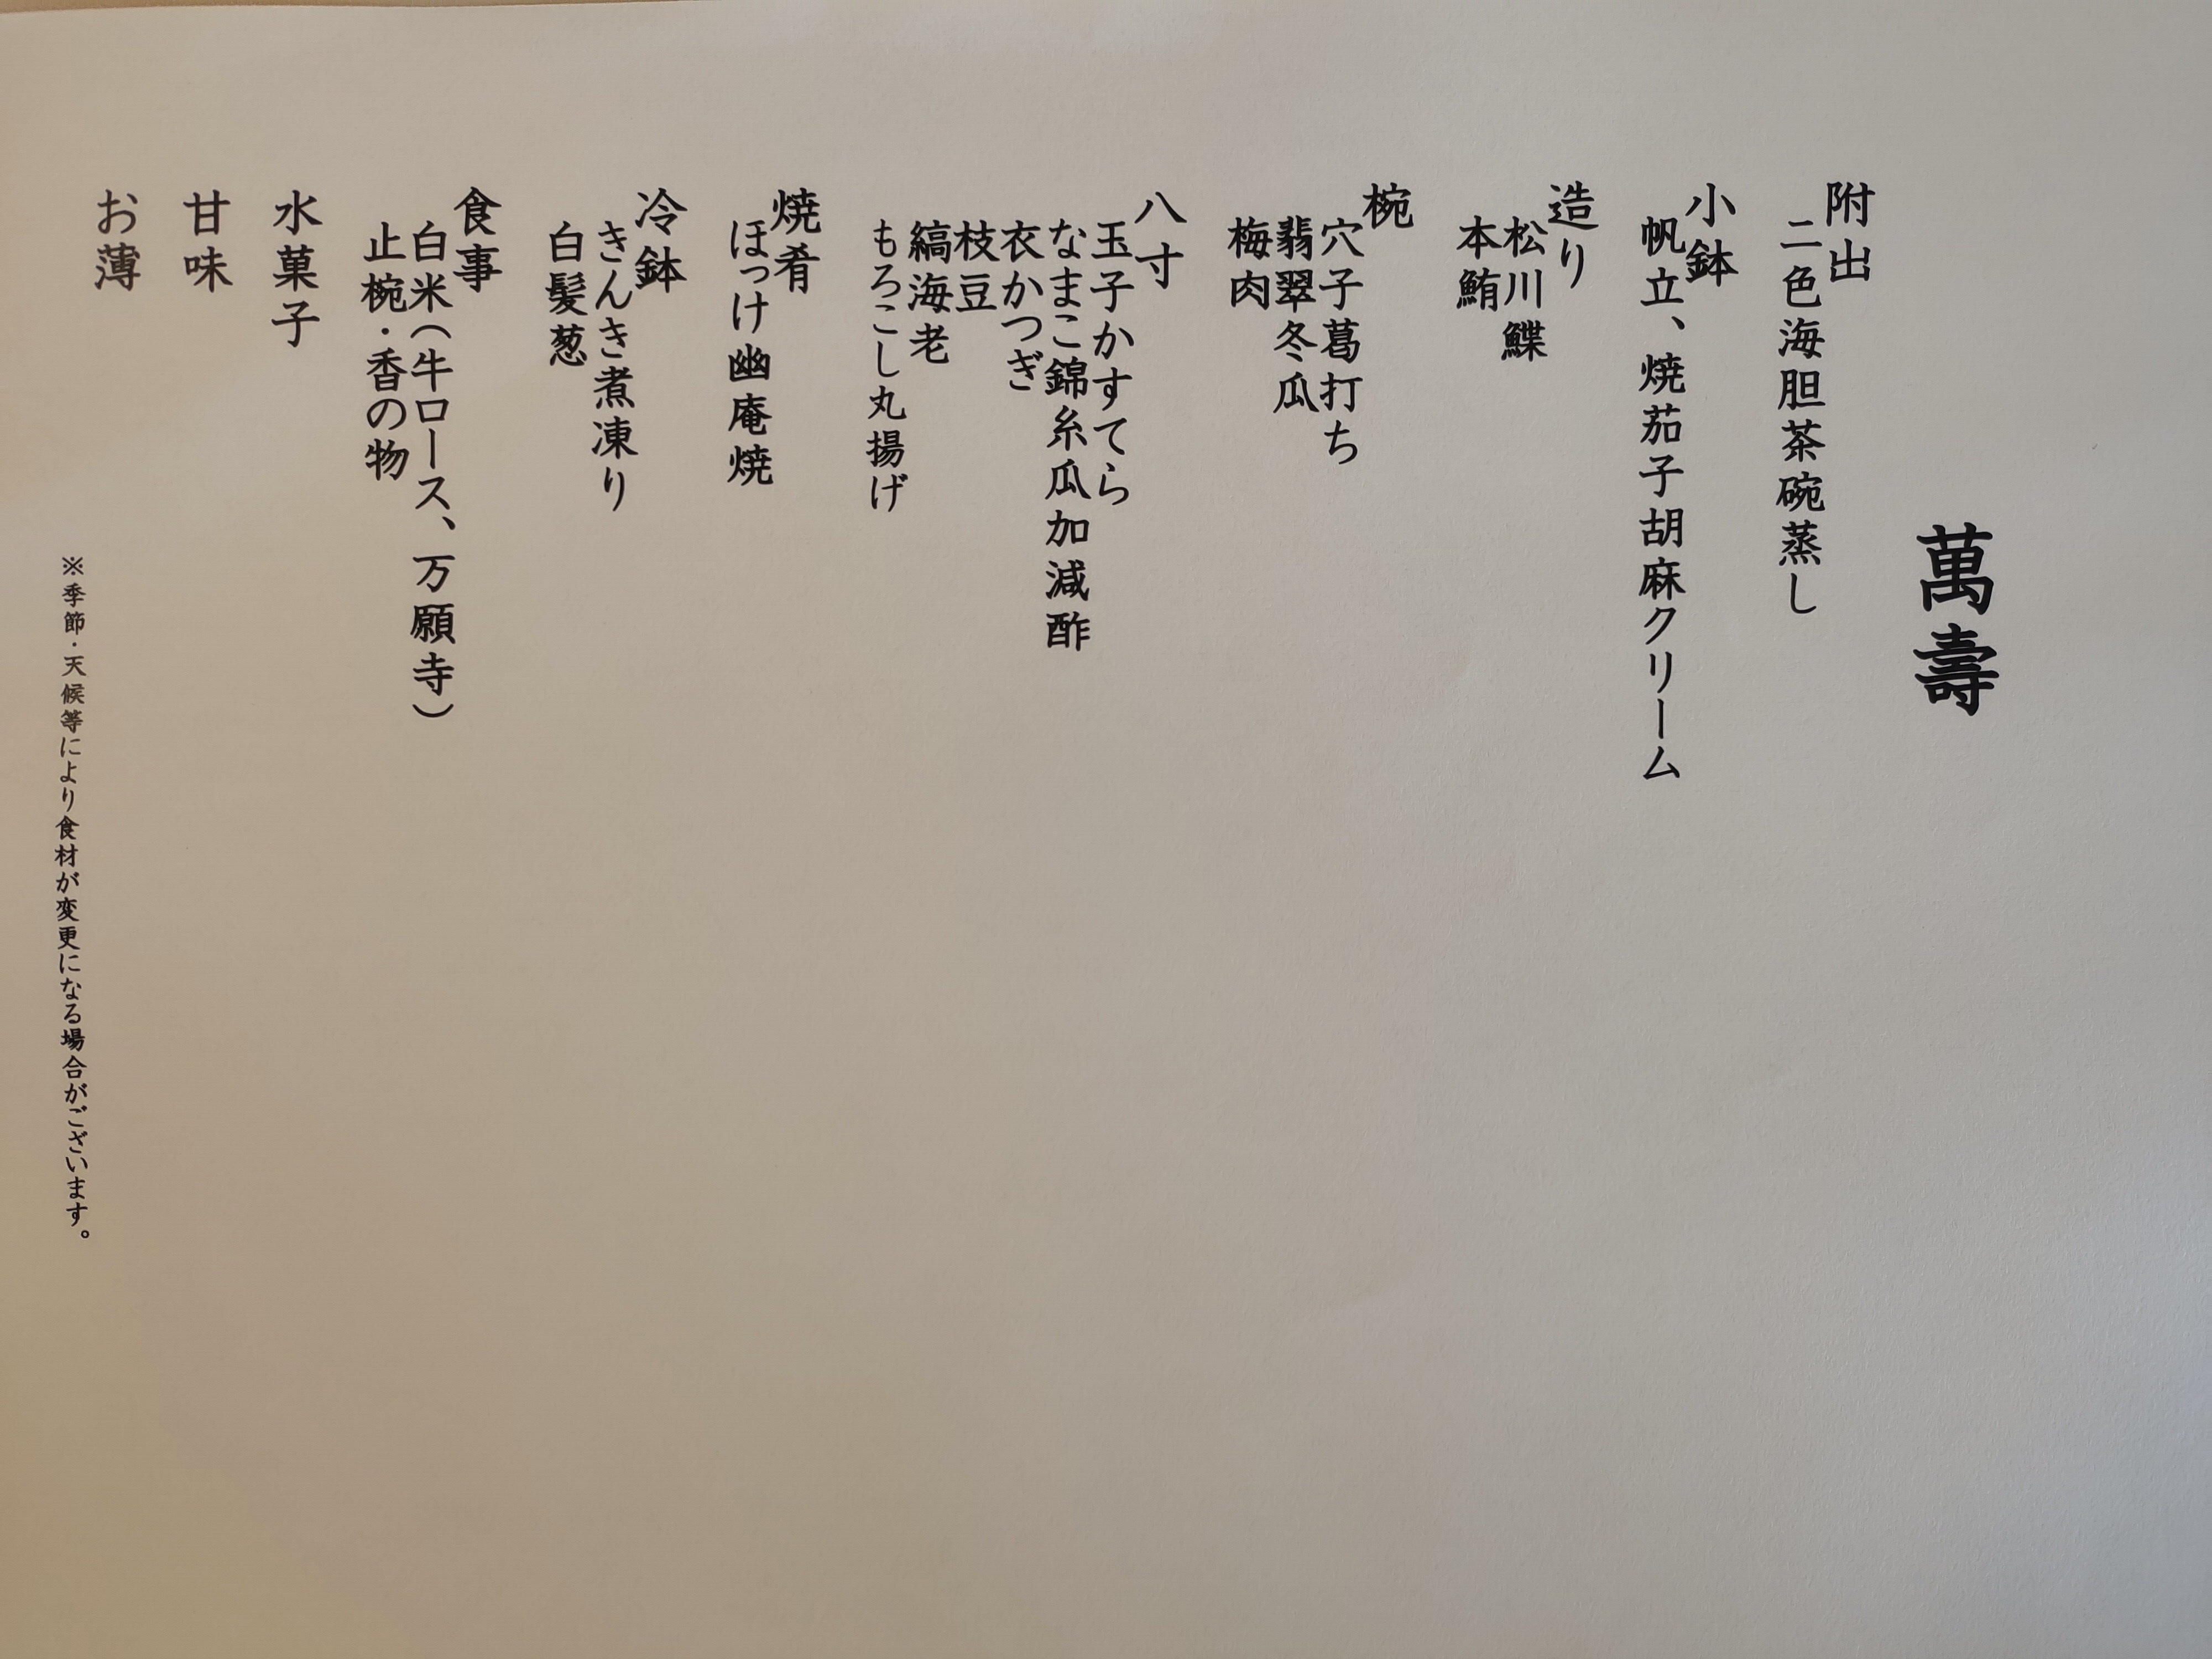 萬壽
附出
二色海胆茶碗蒸し
小鉢
帆立、焼茄子胡麻クリーム
造り
松川鰈
本鮪
椀
穴子葛打ち
翡翠冬瓜
梅肉
八寸
玉子かすてら
なまこ錦糸瓜加減酢
衣かつぎ
枝豆
縞海老
もろこし丸揚げ
焼肴
ほっけ幽庵焼
冷鉢
きんき煮凍り
白髪葱
食事
白米（牛ロース、万願寺）
止椀・香の物
水菓子
甘味
お薄
※季節・天候等により食材が変更になる場合がございます。